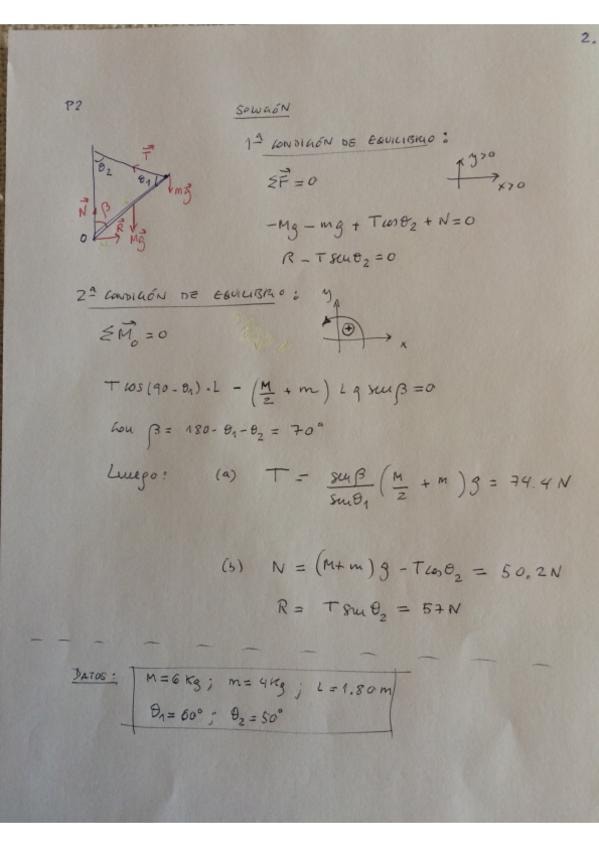 2.
P2
SOLUCIÓN
1ª CONDICIÓN DE EQUILIBRIO:
θ2 T⃗ θ1 mg⃗
N⃗ β R⃗ Mg⃗ O
ΣF⃗ = 0
y>0 x>0
-Mg - mg + T cos θ2 + N = 0
R - T sen θ2 = 0
2ª CONDICIÓN DE EQUILIBRIO:
y + x
ΣM⃗o = 0
T cos(90-θ1)·L - (M/2 + m) L g sen β = 0
Con β = 180-θ1-θ2 = 70°
Luego: (a) T = sen β / sen θ1 (M/2 + m) g = 74.4 N
(b) N = (M+m) g - T cos θ2 = 50.2N
R = T sen θ2 = 57N
DATOS: M=6 Kg; m=4Kg; L=1.80 m
θ1=60°; θ2=50°